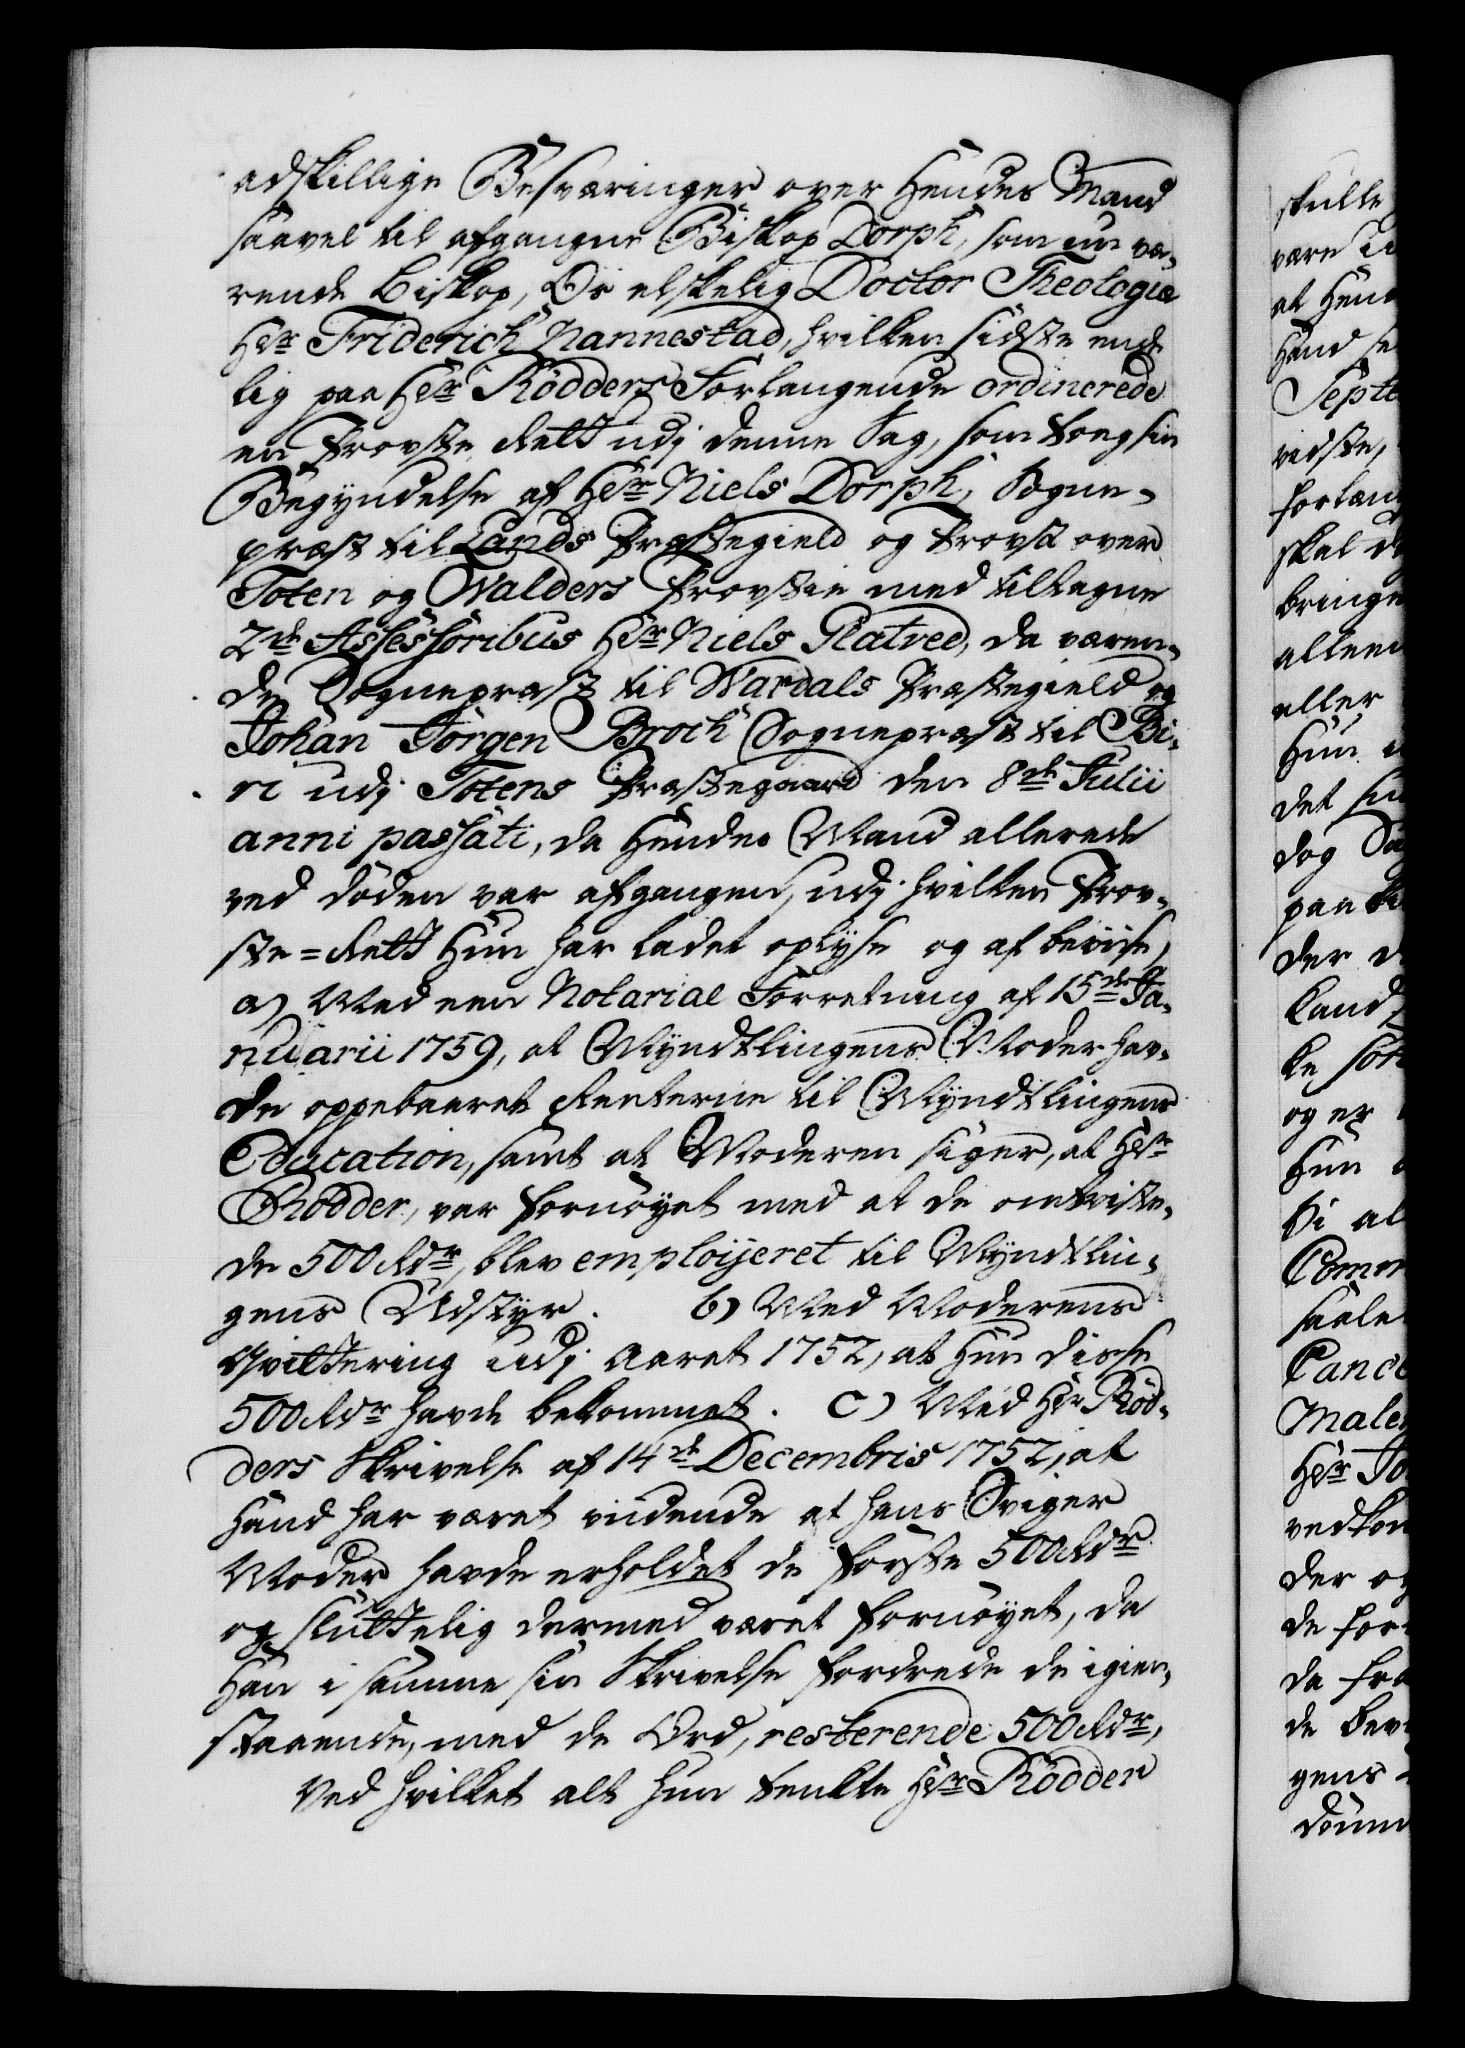 adskillige Besværinger over Hendes Mand
saavel til afgangne Biskop Dorph, som nu væ-
rende Biskop, Os elskelig Doctor Theologiæ
Hr Friderich Nannestad, hvilken sidste ende
lig paa Hr Rödders Forlangende ordinerede
en Provste Rett udj denne Sag, som toeg sin
Begyndelse af Hr Niels Dorph, Sogne-
præst til Lands Præstegield og Provst over
Toten og Walders Provstie med tiltagne
2de Assessoribus Hr Niels Flatred, da væren-
de Sognepræst til Wardals Præstegield og
Johan Jörgen Broch Sognepræst til Bi-
ri udj Totens Præstegaard den 8de Julii
anni passati, da Hendes Mand allerede
ved døden var afgangen, udj hvilken Prov-
ste=Rett Hun har ladet oplyse og af beviise,
a) Med een Notarial Forretning af 15de Ja-
nuarii 1759, at Myndtlingens Moder hav-
de oppebaaret Renterne til Myndtlingens
Education, samt at Moderen siger, at Hr
Rödder, var fornøyet med at de omtviste-
de 500 Rdr, blev employeret til Myndtlin-
gens Udstyr. b) Med Moderens
Qvittering udj Aaret 1752, at Hun disse
500 Rdr havde bekommet. C) Med Hr Röd-
ders Skrivelse af 14de Decembris 1752, at
Hand har været vidende at hans Sviger
Moder havde erholdet de første 500 Rdr
og sluttelig dermed været fornøyet, da
Han i samme sin Skrivelse fordrede de igien-
staaende, med de Ord, resterende 500 Rdr,
Ved hvilket alt hun tenkte Hr Rödder
skulle
være
at Hen
Hand
Sept
vidste,
forlan
skal d
bringe
alleen
eller
Hun
det
dog
paa
der
Land
ke
og er
Hun
ti al
Comm
saale
Canc
Male
Hr Jo
vedkom
der og
de for
da fra
de bev
gens